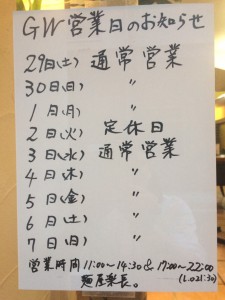 GW営業日のお知らせ
29日(土) 通常営業
30日(日) 〃
1日(月) 〃
2日(火) 定休日
3日(水) 通常営業
4日(木) 〃
5日(金) 〃
6日(土) 〃
7日(日) 〃
営業時間 11:00〜14:30 & 17:00〜22:00
(L.O21:30)
麺屋楽長。